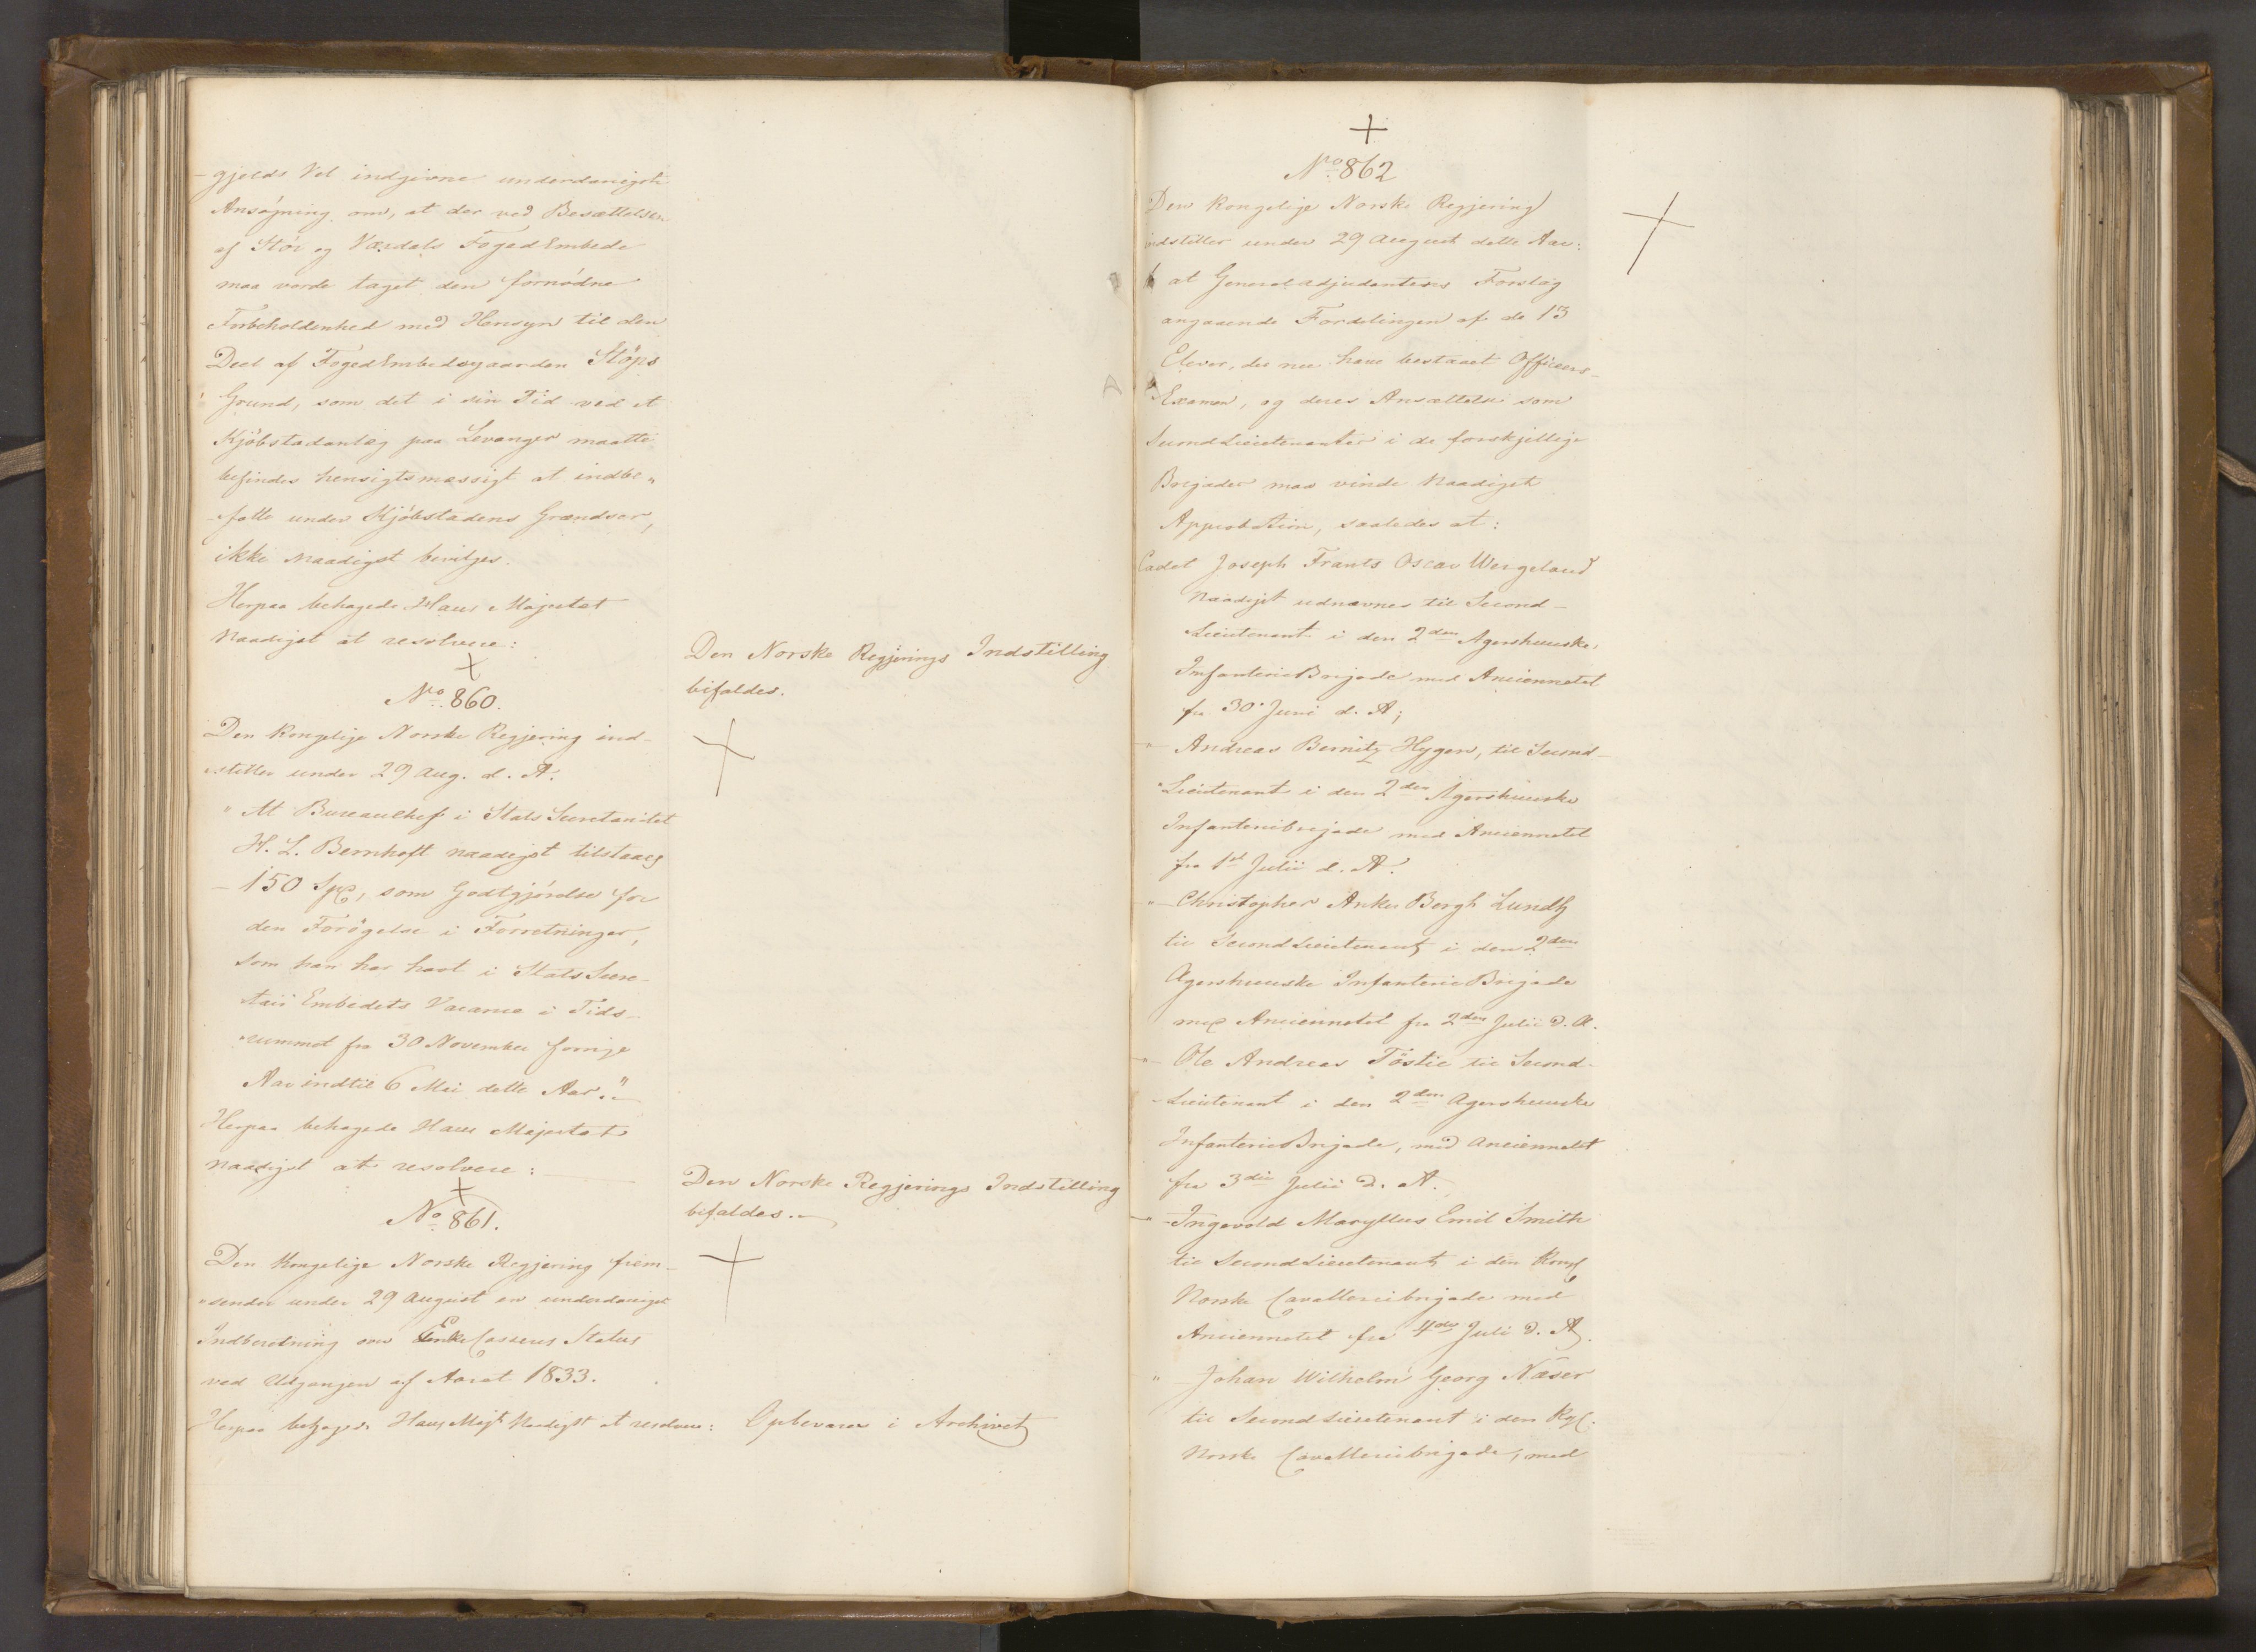 -gjelds Vel indgivne underdanigste
Ansøgning om, at der ved Besættelsen
af Stör og Værdals FogedEmbede
maa vorde taget den fornödne
Forbeholdenhed med Hensyn til den
Deel af FogedEmbedsgaarden Stöps
Grund, som det i sin Tid ved et
Kjöbstadanlæg paa Levanger maatte
befindes hensigtsmæssigt at indbe„
-fatte under Kjöbstadens Grændser,
ikke Naadigst bevilges.
Herpaa behagede Hans Majestæt
Naadigst at resolvere:
Den Norske Regjerings Indstilling
bifaldes.
No 860.
Den Kongelige Norske Regjering ind-
-stiller under 29 Aug. d. A.
"At Bureauchef i StatsSecretariatet
H. L. Bernhoft naadigst tilstaaes
150 Spd, som Godtgjörelse for
den Forögelse i Forretninger,
som han har havt i StatsSecre-
-tair Embedets Vacance i Tids-
-rummet fra 30 November forrige
Aar indtil 6 Mai dette Aar."
Herpaa behagede Hans Majestæt
naadigst at resolvere:
Den Norske Regjerings Indstilling
bifaldes.
No 861.
Den Kongelige Norske Regjering frem-
-sender under 29 August en underdanigst
Indberetning om EnkeCassens Status
ved Udgangen af Aaret 1833.
Herpaa behagede Hans Majt Naadigst at resolvere:
Opbevares i Archivet
No 862
Den Kongelige Norske Regjering
indstiller under 29 August dette Aar:
at Generaladjudantens Forslag
angaaende Fordelingen af de 13
Elever, der nu have bestaaet Officeers-
Examen, og deres Ansættelse som
SecondLieutenanter i de forskjellige
Brigader maa vinde Naadigste
Approbation, saaledes at:
Cadet Joseph Frants Oscar Wergeland
Naadigst udnævnes til Second-
-Lieutenant i den 2den Agershuuske
InfanterieBrigade med Anciennetet
fra 30 Juni d. A;
" Andreas Bernitz Hygen, til Second-
-Lieutenant i den 2den Agershuuske
Infanteribrigade med Anciennetet
fra 1ste Julii d. A.
" Christopher Anker Bergh Lundh
til SecondLieutenant i den 2den
Agershuuske InfanterieBrigade
med Anciennetet fra 2den Julii d. A.
" Ole Andreas Töstie til Second-
-Lieutenant i den 2den Agershuuske
InfanterieBrigade, med Anciennetet
fra 3die Julii d. A.
" Ingevold Emil Smith
til SecondLieutenant i den Kongl
Norske Cavalleribrigade med
Anciennetet fra 4de Juli d. A.
" Johan Wilhelm Georg Næser
til SecondLieutenant i den Kgl.
Norske Cavalleribrigade, med